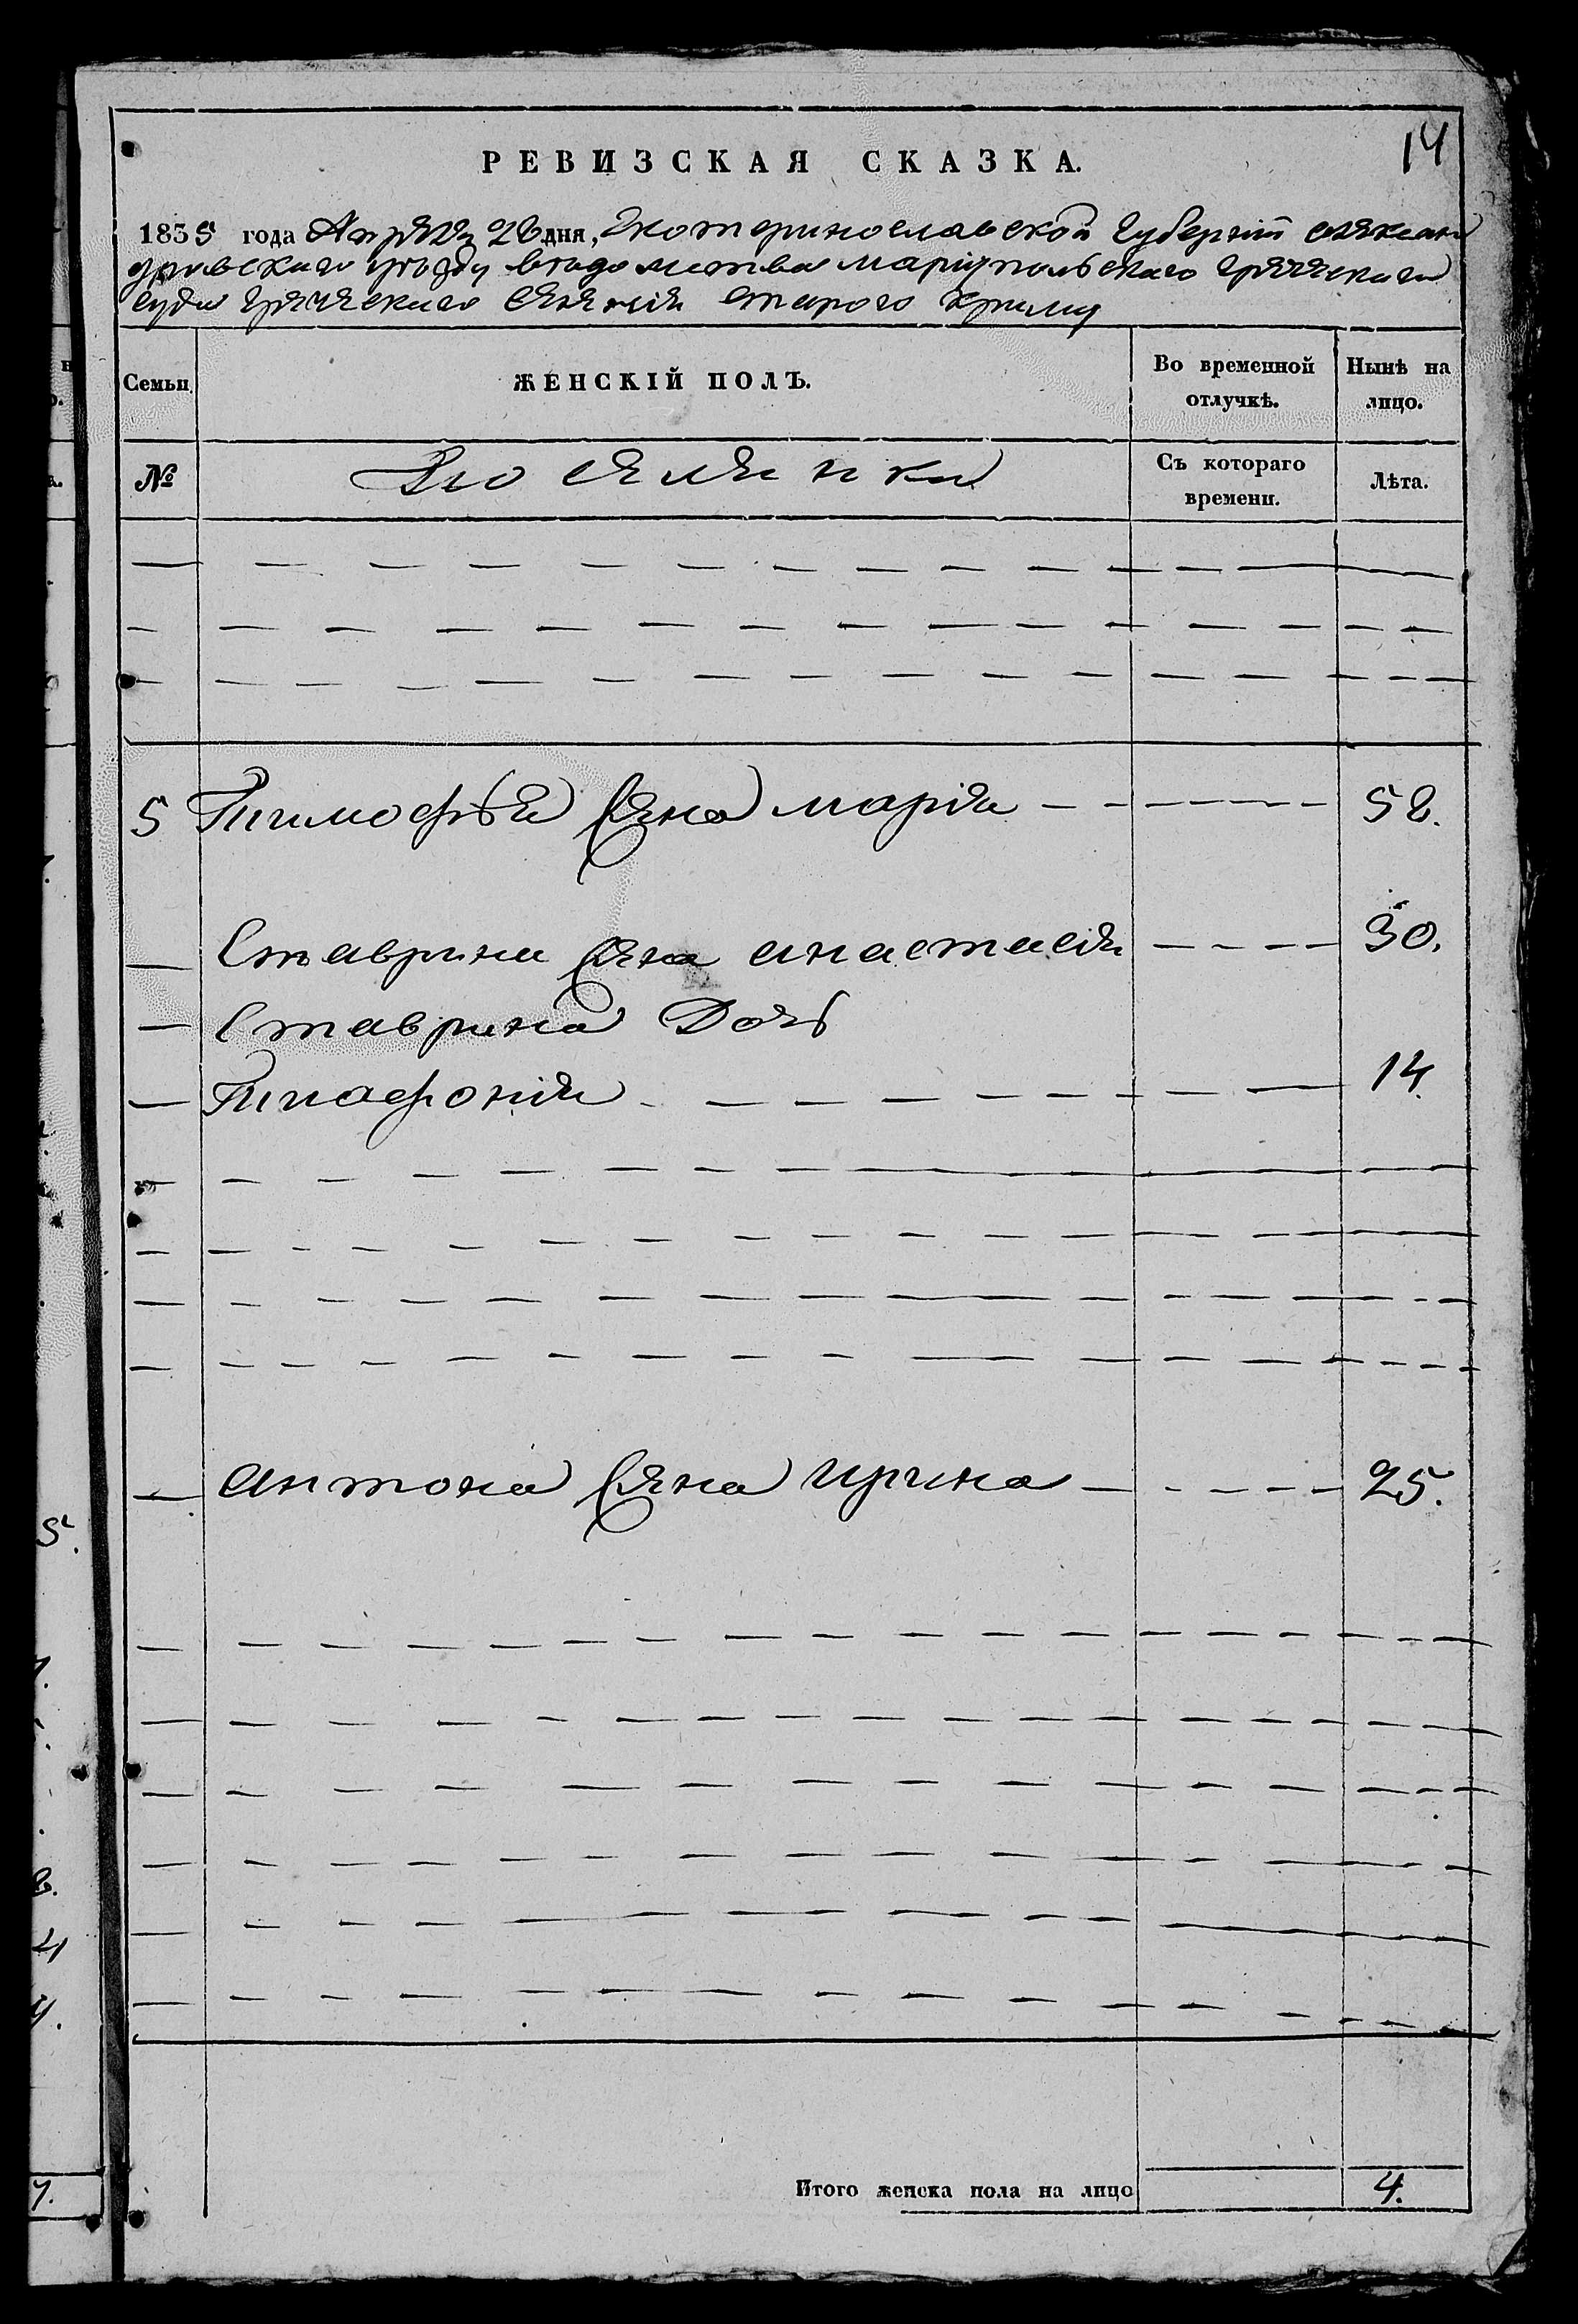 14
РЕВИЗСКАЯ СКАЗКА.
1835 года Апреля 26 дня, Екатеринославской Губернiи Алексан
дровскаго уѣзду вѣдомства Марiупольскаго Греческаго
суда греческаго селенiя Старого Крыму
Семьи. ЖЕНСКIЙ ПОЛЪ. Во временной отлучкѣ. Нынѣ на лицо.
№ Поселянки Съ котораго времени. Лѣта.
5 Тимофѣя Жена Марiя 52.
Ставрина Жена Анастасiя 30.
Ставрина Дочь
14.
Антона Жена Ирина 25.
Итого женска пола на лицо 4.